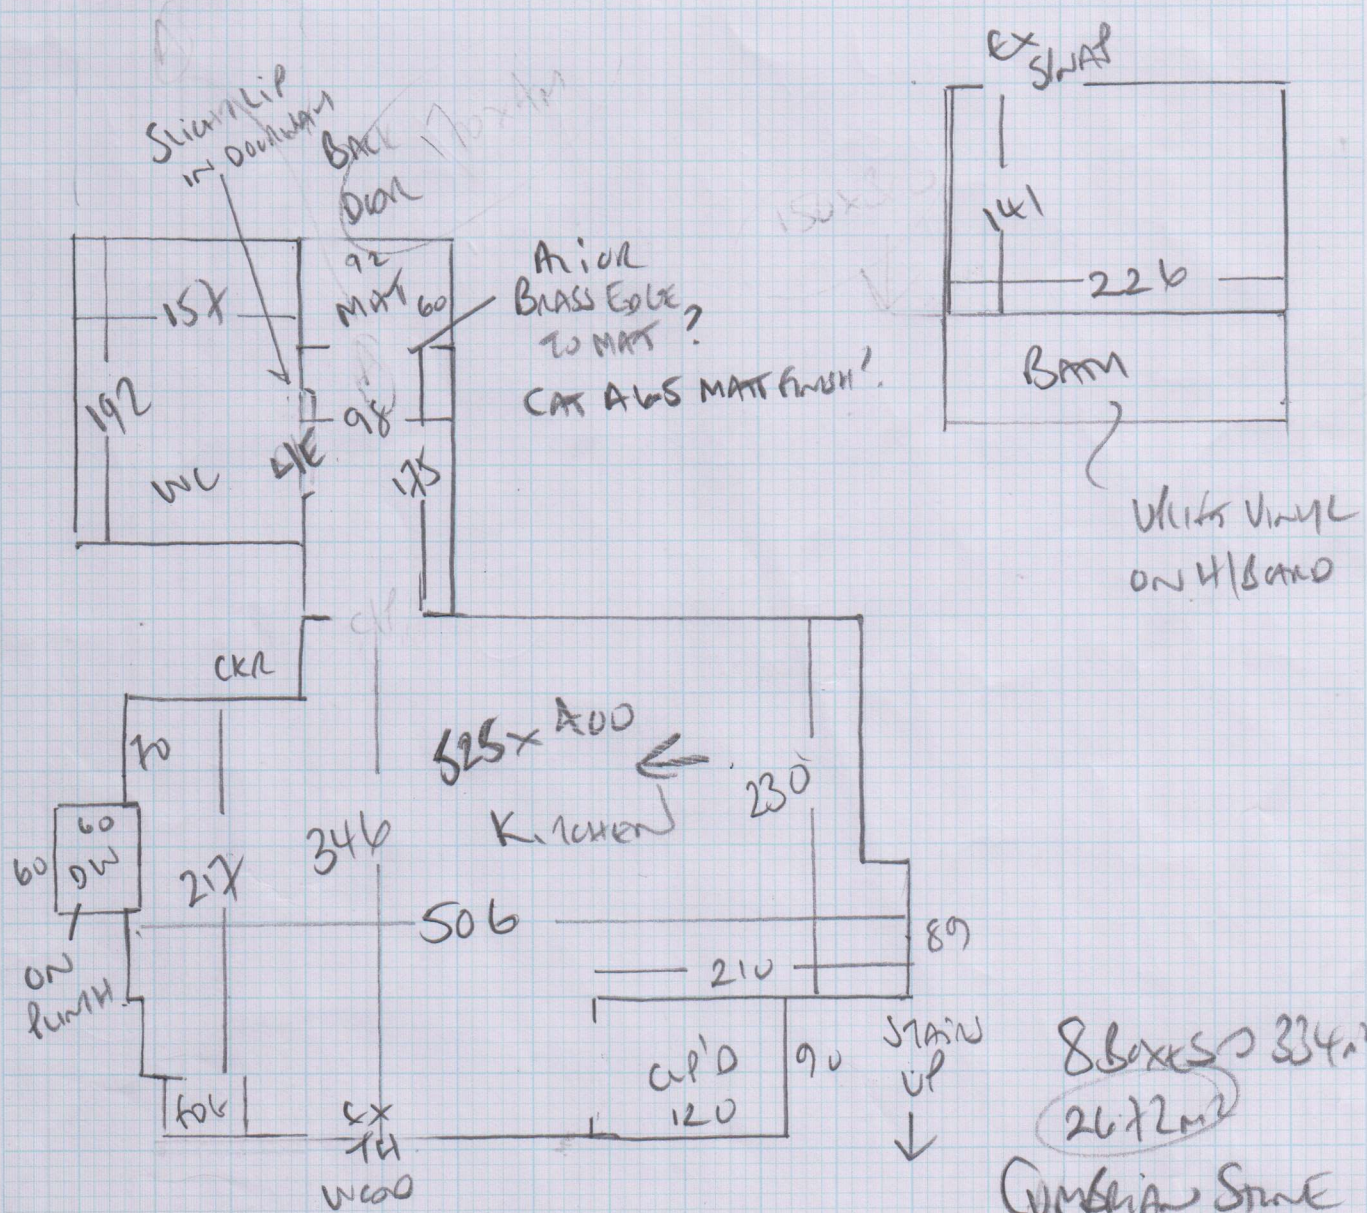 EX
S/NAP
SLIGHT LIP
IN DOORWAY
BACK
DOOR
170 x 4M
141
226
BATH
WHITE VINYL
ON H/BOARD
157
192
WC
92
MAT 60
98
175
BRASS EDGE
TO MAT ?
CAT A65 MATT FINISH!
CKR
70
60
60
DW
ON
PLINTH
217
346
525 x 400
KITCHEN
230
506
210
89
CUP'D
120
90
STAIRS
UP
EX
TH
WOOD
8 BOXES @ 334m²
26.72m²
CUMBRIAN STONE